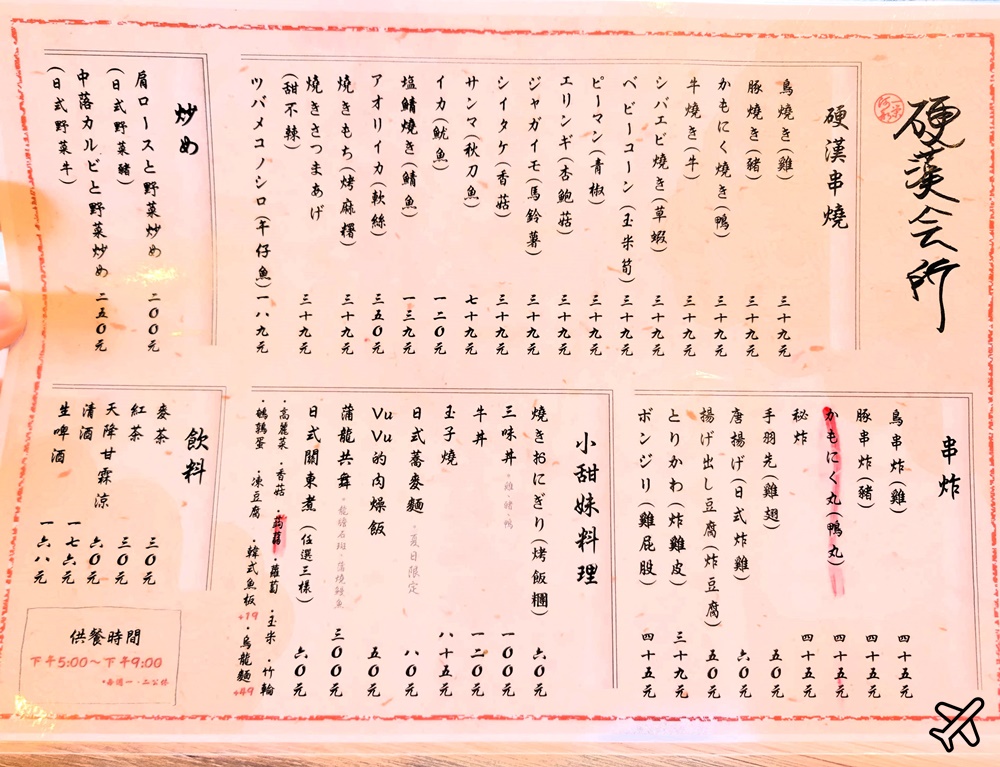 硬漢会所
硬漢串燒
鳥燒き(雞) 三十九元
豚燒き(豬) 三十九元
かもにく燒き(鴨) 三十九元
牛燒き(牛) 三十九元
シバエビ燒き(草蝦) 三十九元
ベビーコーン(玉米筍) 三十九元
ピーマン(青椒) 三十九元
エリンギ(杏鮑菇) 三十九元
ジャガイモ(馬鈴薯) 三十九元
シイタケ(香菇) 三十九元
サンマ(秋刀魚) 七十九元
イカ(魷魚) 一二〇元
塩鯖燒き(鯖魚) 一三九元
アオリイカ(軟絲) 三五〇元
燒きもち(烤麻糬) 三十九元
燒きさつまあげ
(甜不辣) 三十九元
ツバメコノシロ(午仔魚) 一八九元
炒め
肩ロースと野菜炒め 二〇〇元
(日式野菜豬)
中落カルビと野菜炒め 二五〇元
(日式野菜牛)
串炸
鳥串炸(雞) 四十五元
豚串炸(豬) 四十五元
かもにく丸(鴨丸) 四十五元
秘炸 四十五元
手羽先(雞翅) 五〇元
唐揚げ(日式炸雞) 六〇元
揚げ出し豆腐(炸豆腐) 五〇元
とりかわ(炸雞皮) 三十九元
ボンジリ(雞屁股) 四十五元
小甜妹料理
燒きおにぎり(烤飯糰) 六〇元
三味丼 ·雞·豬·鴨 一〇〇元
牛丼 一二〇元
玉子燒 八十五元
日式蕎麥麵 ·夏日限定 八〇元
VuVu的肉燥飯 五〇元
蒲龍共舞 ·龍膽石斑·蒲燒鰻魚 三〇〇元
日式關東煮(任選三樣) 六〇元
·高麗菜 ·香菇 ·蒟蒻 ·蘿蔔 ·玉米 ·竹輪
·鵪鶉蛋 ·凍豆腐 ·韓式魚板+19 ·烏龍麵+49
飲料
麥茶 三〇元
紅茶 三〇元
天降甘霖涼 六〇元
清酒 一七六元
生啤酒 一六八元
供餐時間
下午5:00～下午9:00
•每週一、二公休